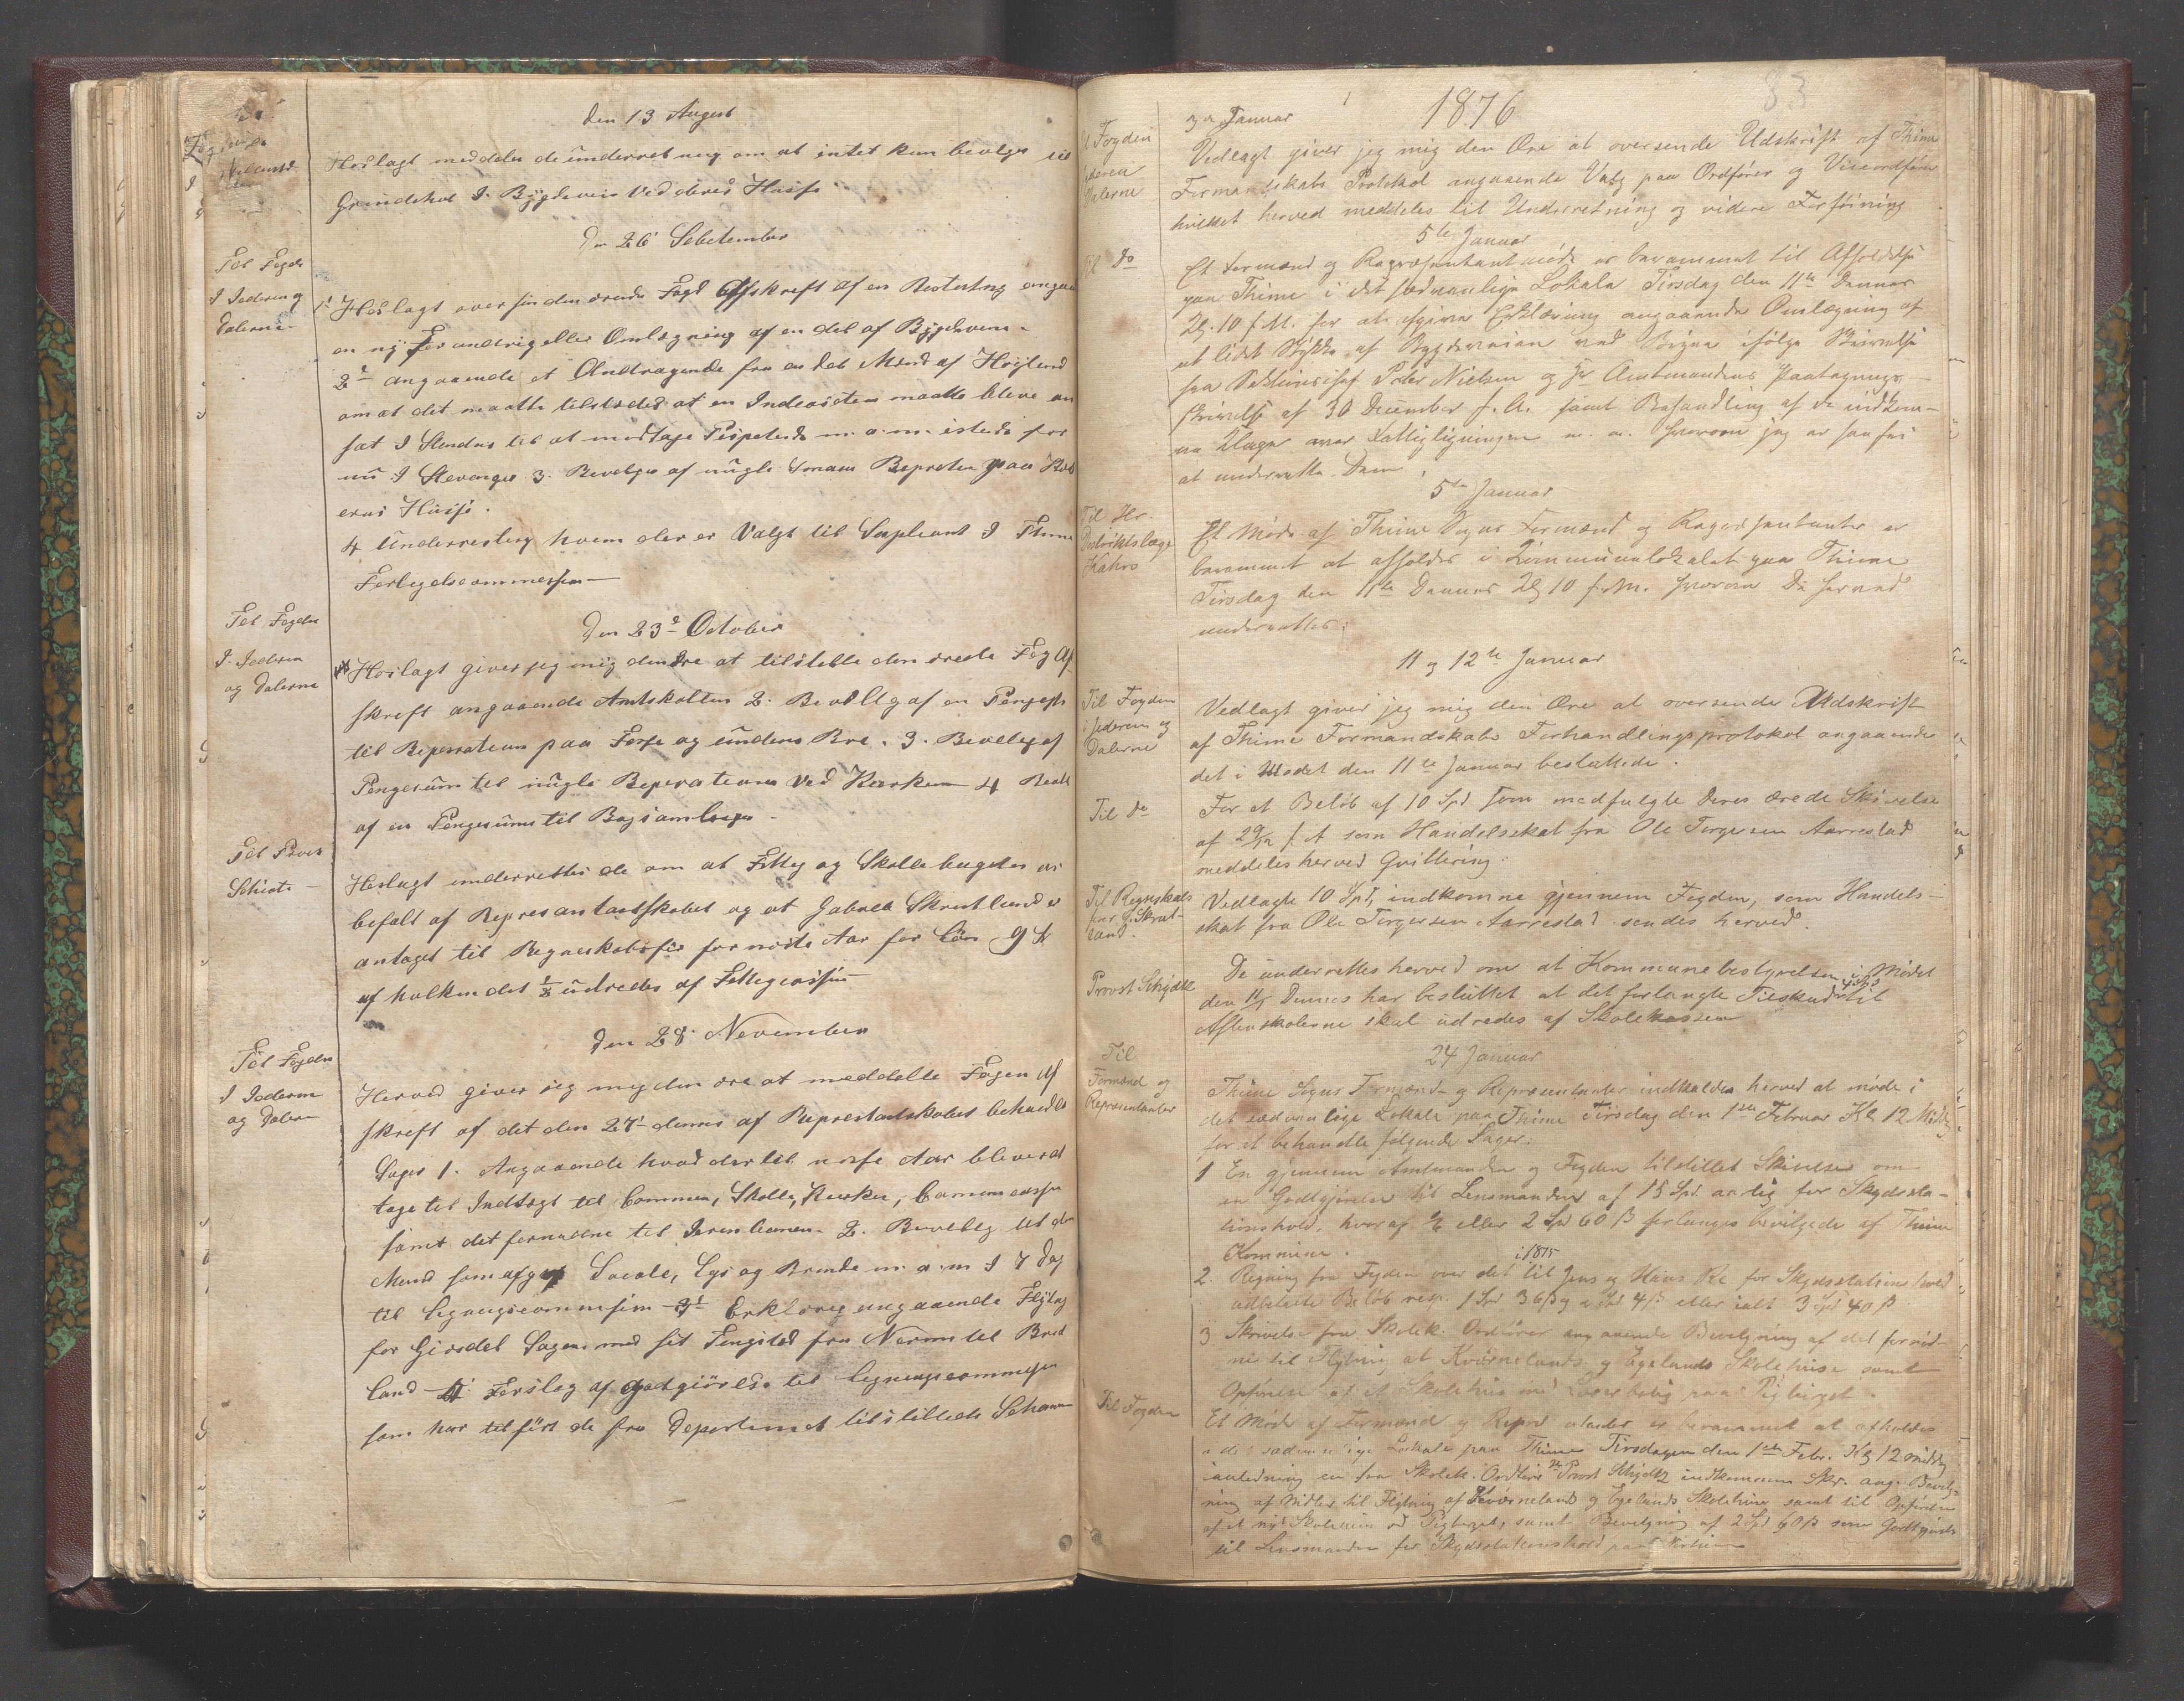 den 13 August
Hoslagt meddeles de underretning om at intet kan bevilges til
Grindehol I Bygdeveien Ved deres Huse
Den 26 Sebtember
Til Fogden
I Jederen og
Dalerne
1 Hoslagt oversendes den ærede Fogd Afskreft af en Beslutning angaa
en ny Forandring eller Omlægning af en del af Bygdevein
2 angaaende et Andragende fra en del Mænd af Høiland
om at det maatte tilstedes at en maatte blive an
sat I Sandnes til at modtage m. a. m. istede for
nu I Stavanger 3. Bevilges af nugle paa
Huse.
4 Underretning hvem der er Valgt til Supleant I Thime
Forligelsecommission
Den 23 October
Til Fogden
I Jederen
og Dalerne
Hoslagt giver jeg mig den Ære at tilstelle den ærede Fog Af
skreft angaaende Amtskatten 2. Bevillg af en Penge
til Reperation paa Fosse og Undems Bro. 3. Bevillg af
Pengesum til nugle Reperationer Ved Kirken 4
af en Pengesum til
Til Provst
Schiøtz
Hoslagt underrettes de om at Fattig og Skolle bugetet er
befalt af Represantantskabet og at Gabriel Skretland er
antaget til Regneskabsfør for næste Aar for Løn 9
af hvilken det ½ udredes af Fattigcassen
Den 28 November
Til Fogden
I Jederen
og Dalern
Herved giver jeg mig den ære at meddelle Fogen Af
skreft af det den 27 dennes af Represtantskabet behandled
Sager 1. Angaaende hvad der til næste Aar bliver at
tage til Indtægt til Commen, Skolle, Kirken, Commecassen
samt det fornødne til Jernbanen. 2. Bevillg til de
Mænd som afgav Locale, Lys og Brende m. a. m I 7 Dag
til Ligningscommission 3 Erklæring angaaende Flytng
for Giesdal Sogn med sit Tingsted fra Nærum til Bret
land 4 Forslag af Godtgiørelse til Ligningscommission
som har tilført de fra Departemet tilstillede Schema
1876
83
3die Januar
Fogden
Jæderen
Dalerne
Vedlagt giver jeg mig den Ære at oversende Udskrift af Thime
Formandskabs Protokol angaaende Valg paa Ordfører og Viceordfører
hvilket herved meddeles til Underretning og videre Forføining
5te Januar
Til Do
Et Formænd og Repræsentantmøde er berammet til Afholdelse
paa Thime i det sædvanlige Lokale Tirsdag den 11te Dennes
Kl. 10 f.M. for at afgive Erklæring angaaende Omlægning af
et lidet Stykke af Bygdeveien ved Bryne ifølge Skrivelse
fra Sektionschef Peder Nielsen og Hr Amtmandens Paategnings-
skrivelse af 30 December f. A. samt Behandling af de indkom-
ne Klager over Fattigligningen m. m. hvorom jeg er saa fri
at underrette Dem.
5te Januar
Til Hr.
Distriktslæge
Et Møde af Thime Sogns Formænd og Repræsentanter er
berammet at afholdes i Kommunelokalet paa Thime
Tirsdag den 11te Dennes Kl 10 f.M. hvorom De herved
underrettes.
11 og 12te Januar
Til Fogden
i Jederen og
Dalerne
Vedlagt giver jeg mig den Ære at oversender Udskrift
af Thime Formandskabs Forhandlingsprotokol angaaende
det i Mødet den 11te Januar besluttede.
Til Do
For et Beløb af 10 Spd som medfulgte Deres ærede Skrivelse
af 29/12 f. A som Handelsskat fra Ole Torgersen Aarrestad
meddeles herved Qvittering.
Til Regnskabs
før G. Skret-
land.
Vedlagte 10 Spd, indkomne gjennem Fogden, som Handels-
skat fra Ole Torgersen Aarrestad sendes herved.
Provst Schjøtz
De underrettes herved om at Kommunebestyrelsen i Mødet
den 11/1 Dennes har besluttet at det forlangte Tilskud 4 Spd til
Aftenskolerne skal udredes af Skolekassen
24 Januar
Til
Formænd og
Repræsentanter
Thime Sogns Formænd og Repræsentanter indkaldes herved at møde i
det sædvanlige Lokale paa Thime Tirsdag den 1ste Februar Kl 12 Middag
for at behandle følgende Sager:
1 En gjennem Amtmanden og Fogden tilstillet Skrivelse om
en Godtgjørelse til Lensmanden af 15 Spd. aarlig for Skydssta-
tionshold, hvoraf 1/6 eller 2 Spd 60 ß forlanges bevilgede af Thime
Kommune.
2. Regning fra Fogden over det i 1875 til Jens og Hans Re for Skydsstationshold
udbetalte Beløb resp. 1 Spd 36 ß og 2 Spd 4 ß eller ialt 3 Spd 40 ß.
3 Skrivelse fra Skolek. Ordfører angaaende Bevilgning af det fornød-
ne til Flytning at Kvernelands og Egelands Skolehuse samt
Opførelse af et Skolehus med Lærerbolig paa
Til Fogden
Et Møde af Formænd og Repræsentanter er berammet at afholdes
i det sædvanlige Lokale paa Thime Tirsdagen den 1ste Febr. Kl 12 Middg
i anledning en fra Skolek. Ordfører Hr Provst Schjøtz indkommen Skr. ang. Bevilg-
ning af Midler til Flytning af Kverneland og Egelands Skolehuse samt til Opførelse
af et nyt Skolehus samt Bevilgning af 2 Spd 60 ß som Godtgjørelse
til Lensmanden for Skydsstationshold paa